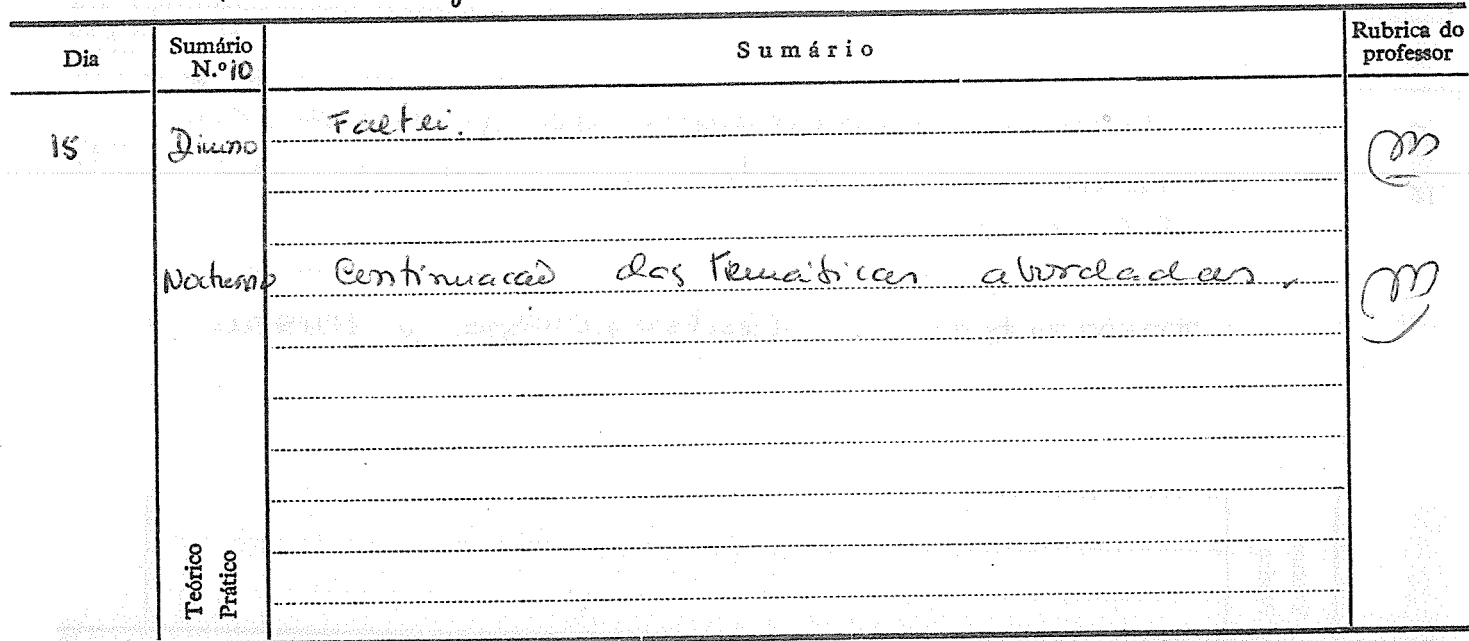 Dia Sumário N.º 10 Sumário Rubrica do professor
15 Diurno Faltei.
Nocturno Continuação das temáticas abordadas.
Teórico
Prático